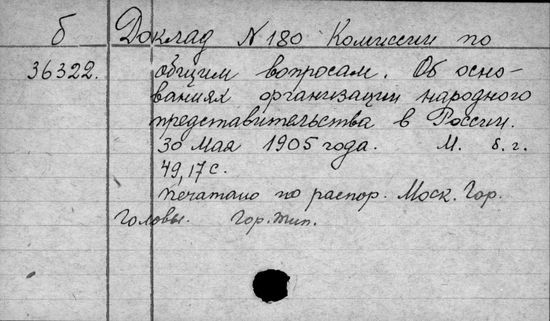 б Доклад N 180 Комиссии по
36322. общим вопросам. Об осно-
ваниях организации народного
представительства в России.
30 мая 1905 года. М. б. г.
49, 17 с.
Печатано по распор. Моск. Гор.
Головы. Гор. тип.